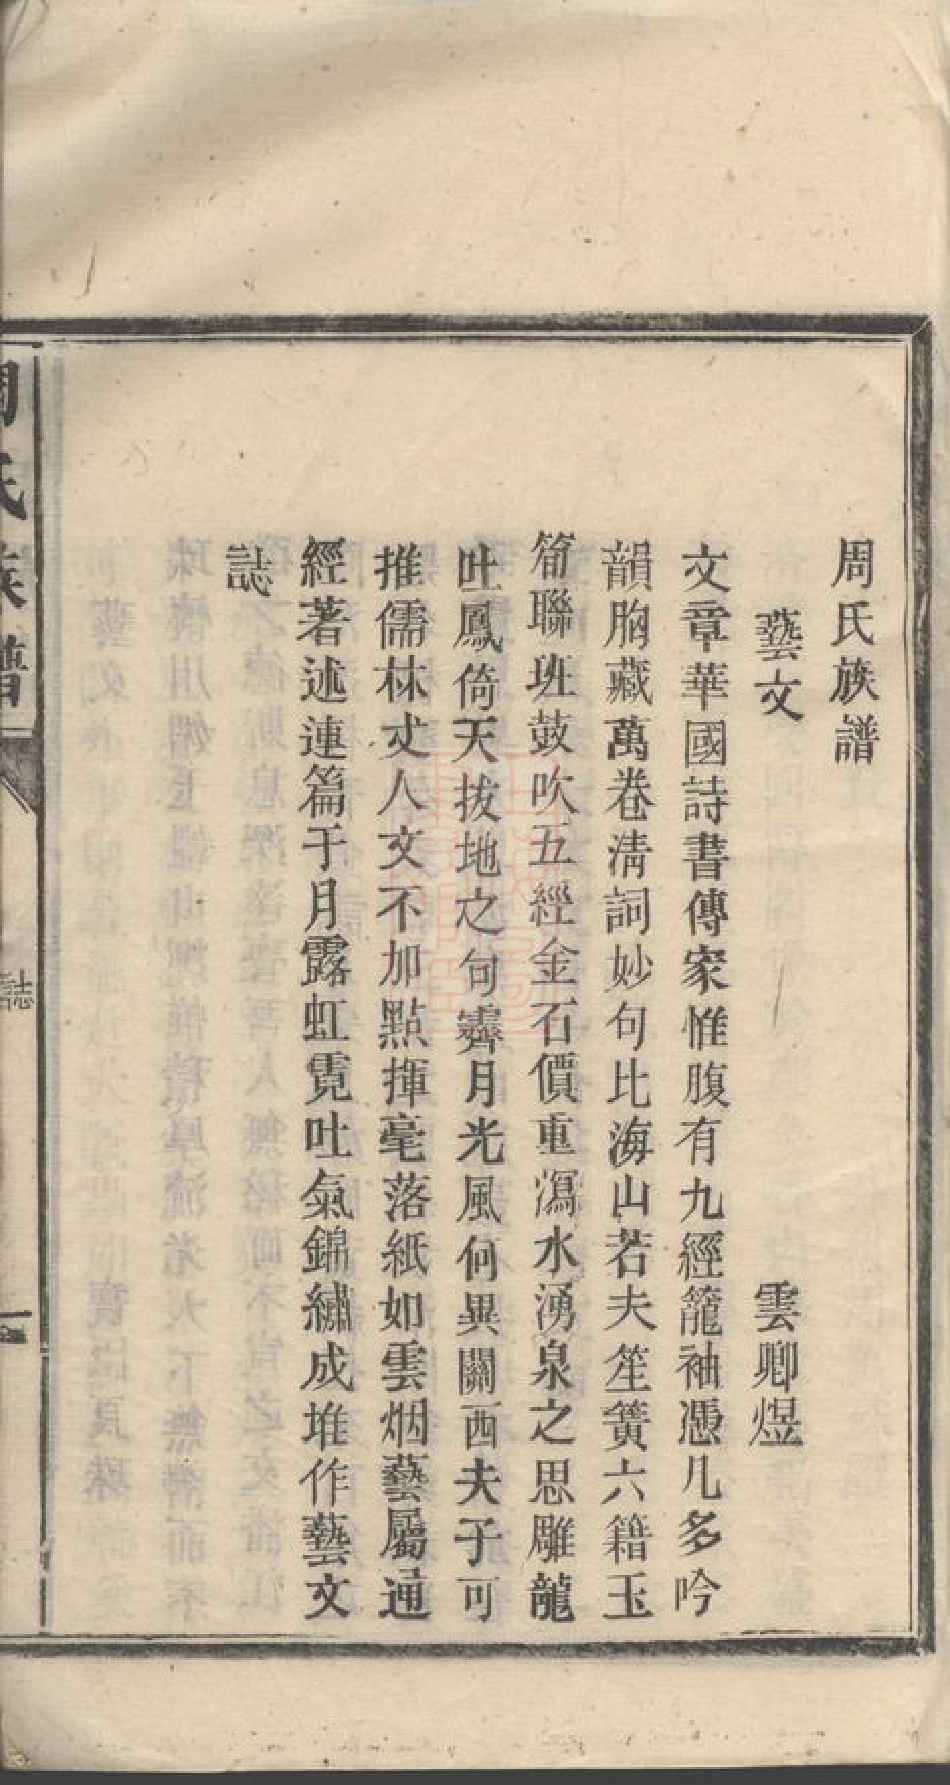 周氏族譜
藝文 雲卿煜
文章華國詩書傳家惟腹有九經籠袖憑几多吟
韻胸藏萬卷清詞妙句比海山若夫笙簧六籍玉
筍聯班鼓吹五經金石價重瀉水湧泉之思雕龍
吐鳳倚天拔地之句霽月光風何異關西夫子可
推儒林丈人文不加點揮毫落紙如雲烟藝屬通
經著述連篇于月露虹霓吐氣錦繡成堆作藝文
誌
周氏族譜
誌
一